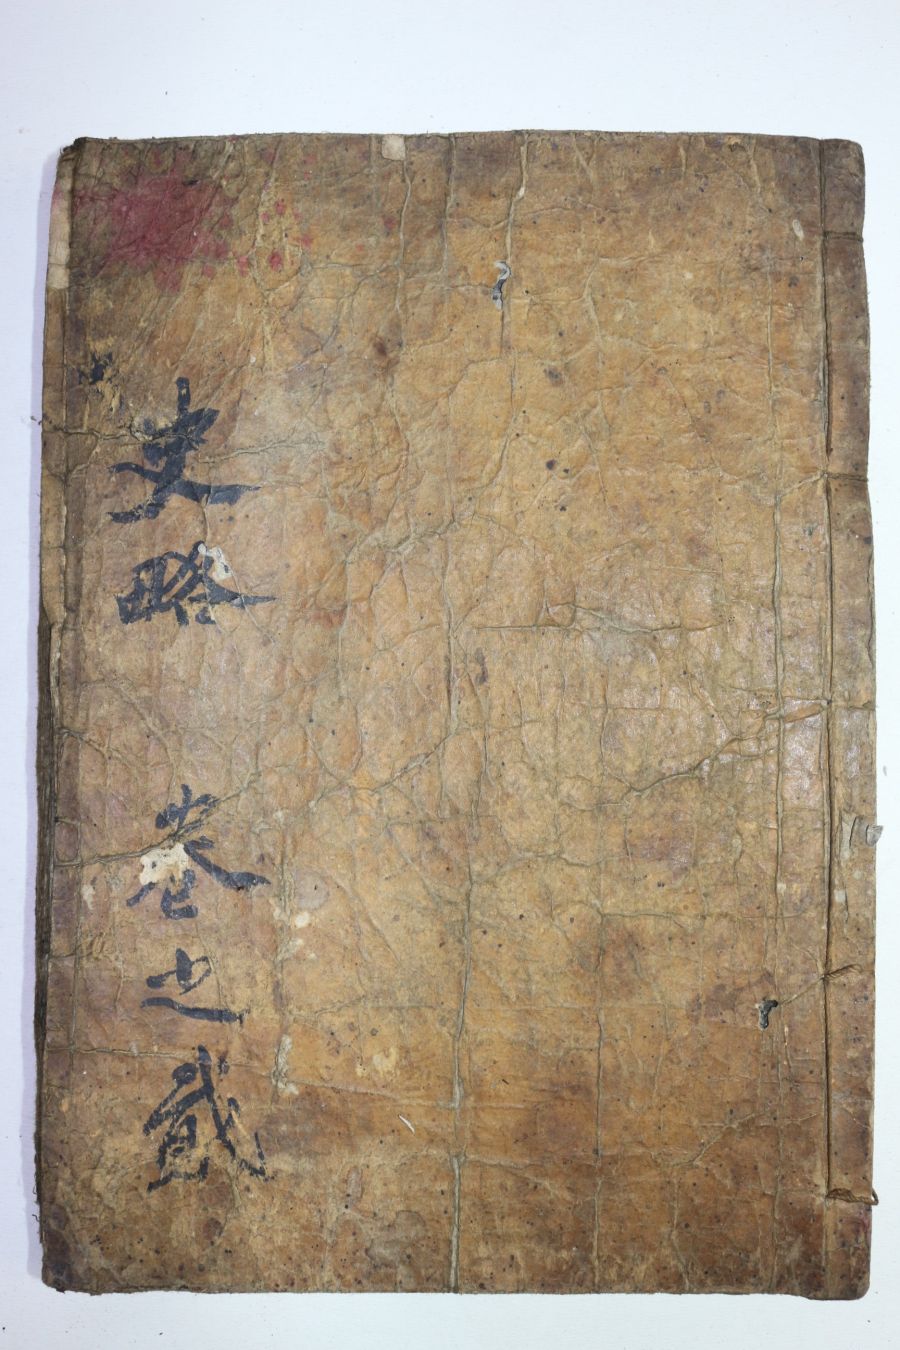 史略 卷之貳